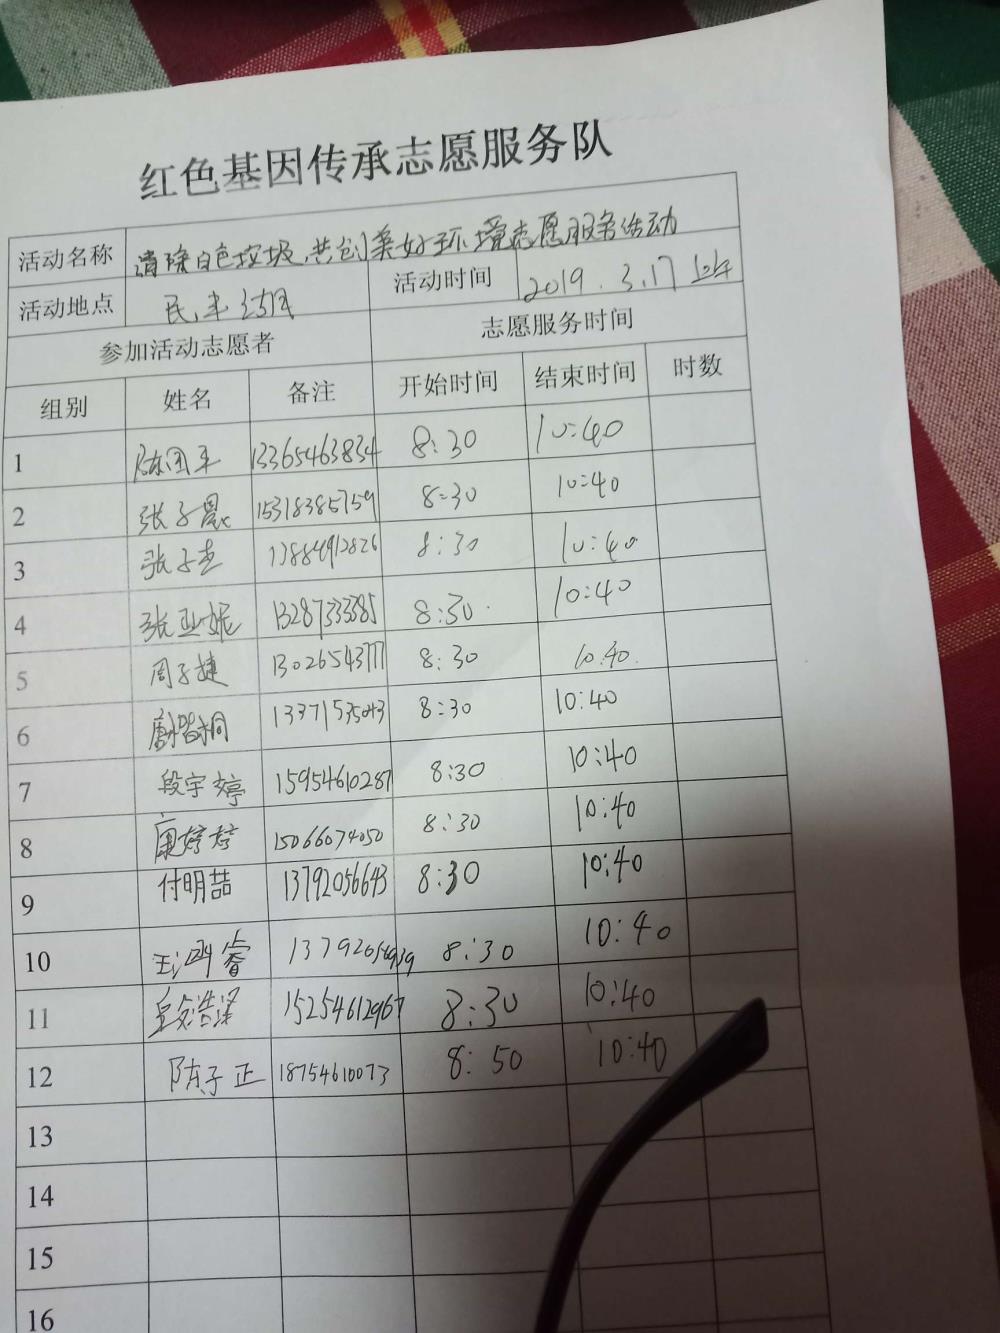 红色基因传承志愿服务队
活动名称 清除白色垃圾,共创美好环境志愿服务活动
活动地点 民丰 活动时间 2019.3.17上午
参加活动志愿者 志愿服务时间
组别 姓名 备注 开始时间 结束时间 时数
1 陈国丰 13365463834 8:30 10:40
2 张子晨 15318385759 8:30 10:40
3 张子 13884912826 8:30 10:40
4 张亚妮 13287333385 8:30 10:40
5 周子捷 13026543777 8:30 10:40
6 8:30 10:40
7 段宇婷 15954610287 8:30 10:40
8 康婷婷 15066074050 8:30 10:40
9 付明喆 13792056643 8:30 10:40
10 8:30 10:40
11 15254612967 8:30 10:40
12 陈子正 18754610073 8:50 10:40
13
14
15
16